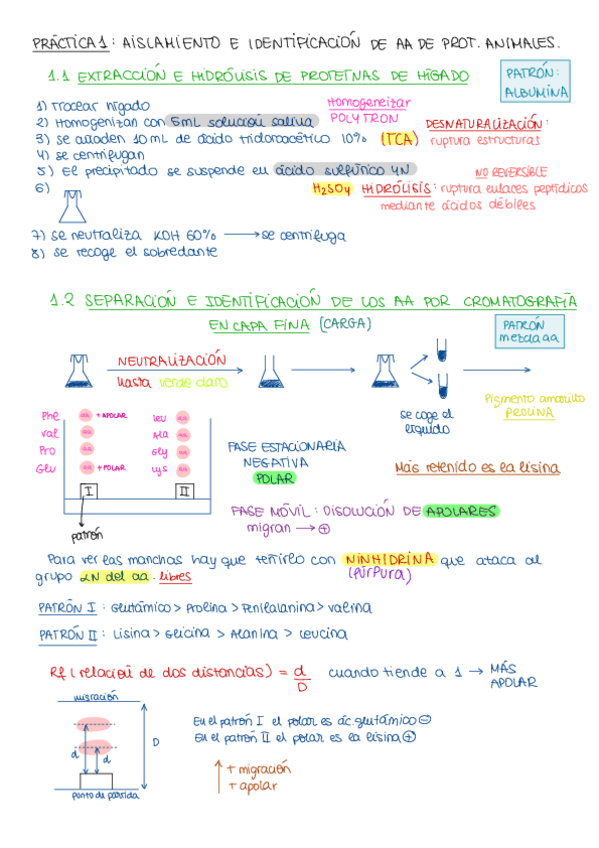 PRÁCTICA 1: AISLAMIENTO E IDENTIFICACIÓN DE AA DE PROT. ANIMALES.
1.1 EXTRACCIÓN E HIDRÓLISIS DE PROTEÍNAS DE HÍGADO
PATRÓN:
ALBUMINA
1) Trocear hígado
2) Homogenizan con 5mL solución salina
Homogeneizar
POLYTRON
3) Se añaden 10 mL de ácido tricloroacético 10% (TCA)
DESNATURALIZACIÓN:
ruptura estructuras
4) Se centrifugan
5) El precipitado se suspende en ácido sulfúrico 4N
NO REVERSIBLE
6)
H2SO4 HIDRÓLISIS: ruptura enlaces peptídicos
mediante ácidos débiles
7) Se neutraliza KOH 60% → se centrifuga
8) Se recoge el sobredante
1.2 SEPARACIÓN E IDENTIFICACIÓN DE LOS AA POR CROMATOGRAFÍA
EN CAPA FINA (CARGA)
PATRÓN
mezcla aa
NEUTRALIZACIÓN
hasta verde claro
se coge el
líquido
Pigmento amarillo
PROLINA
Phe aa + APOLAR Leu aa
Val aa Ala aa
Pro aa Gly aa
Glu aa + POLAR Lys aa
I II
patrón
FASE ESTACIONARIA
NEGATIVA
POLAR
Más retenido es la lisina
FASE MÓVIL: DISOLUCIÓN DE APOLARES
migran → +
Para ver las manchas hay que teñirlo con NINHIDRINA que ataca al
grupo 2N del aa. libres
(PÚRPURA)
PATRÓN I: Glutámico > Prolina > Fenilalanina > valina
PATRÓN II: Lisina > Glicina > Alanina > Leucina
Rf (relación de dos distancias) = d/D cuando tiende a 1 → MÁS
APOLAR
migración
D
d
d
punto de partida
En el patrón I el polar es ác. glutámico -
En el patrón II el polar es la lisina +
+ migración
+ apolar